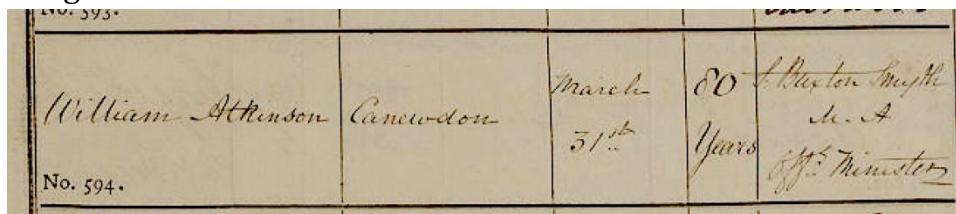 No. 593.
William Atkinson
Canewdon
March
31st
80
Years
Buxton Smyth
M. A
Offg. Minister
No. 594.